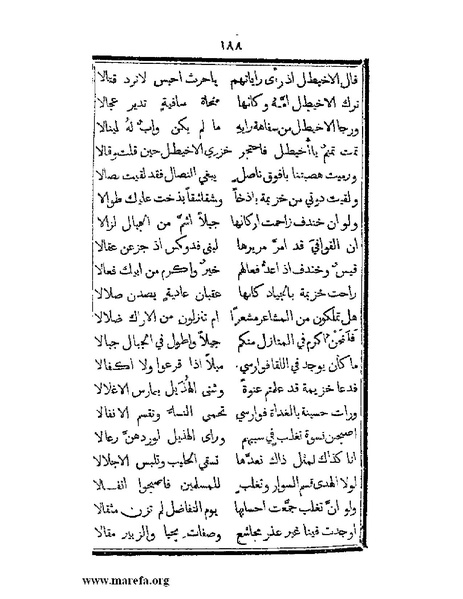 ١٨٨
قال الاخيطل اذ رأى راياتهم يا حرث احبس لا نرد قتالا
ترك الاخيطل امّه وكانها منحاة سافية تدير عجالا
ورجا الاخيطل من سفاهة رايه ما لم يكن وابٌ لهُ لينالا
تمت تميمٌ يا أخيطل فاحتجر خزي الاخيطل حين قلت وقالا
ورميت هضبتنا بافوق ناصل يبغي النضال فقد لقيت نضالا
ولقيت دوني من خزيمة باذخاً وشقاشقاً بذخت عليك طوالا
ولو ان خندف زاحمت اركانها جبلاً اشمّ من الجبال لزالا
ان القوافي قد امرّ مريرها لبني فدوكس اذ جزعن عقالا
قيسٌ وخندف اذ اعدّ فعالهم خيرٌ واكرم من ابيك فعالا
راحت خزيمة بالجياد كانها عقبان عادية يصدن صلالا
هل تملكون من المشاعر مشعراً ام تنزلون من الاراك ظلالا
فلنحن اكرم في المنازل منكم جبلاً واطول في الجبال جبالا
ما كان يوجد في اللقا فوارسي ميلاً اذا فزعوا ولا اكفالا
فدعا خزيمة قد علمتم عنوة وشتى الهذيل يمارس الاغلالا
ورات حسينة بالغداة فوارسي تحمي النساء وتقسم الانفالا
اصبحن نسوة تغلب في سبيهم وراى الهذيل لوردهنّ رعالا
انا كذاك لمثل ذاك نعدّها تسقى الحليب وتلبس الاجلالا
لولا الهدى قسم السوار وتغلب للمسلمين فاصبحوا انفالا
ولو انّ تغلب جمّعت احسابها يوم التفاضل لم تزن مثقالا
اوجدت فينا غير عذر مجاشع وصفات يحيا والزبير مقالا
www.marefa.org